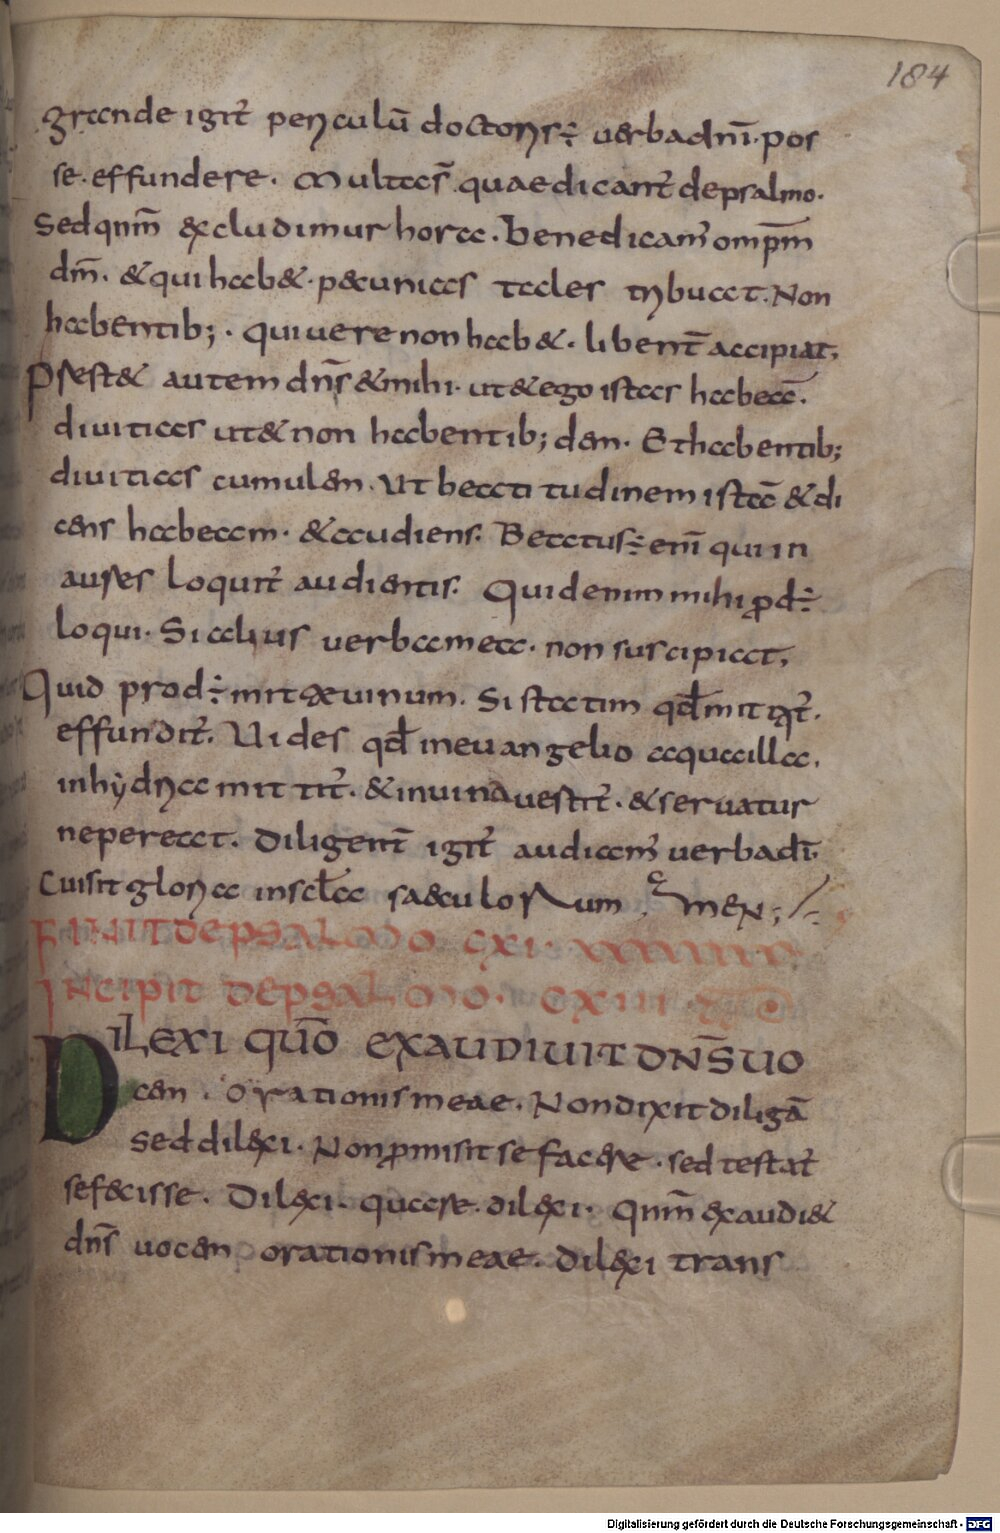 184
grande igit̄ periculū doctoris ÷ uerba dn̄i. pos
se. effundere. Multa s̄. quae dicant̄ de psalmo.
Sed qnm̄ excludimur hora. Benedicam' omp̄m
dm̄. & qui hab&. pecunias tales tribuat. Non
habentib;. qui uere non hab&. libent̄ accipiat,
Prest& autem dn̄s & mihi. ut & ego istas habeā.
diuitias ut & non habentib; dem. Et habentib;
diuitias cumulem. Ut beatitudinem istā & di
cens habeam. & audiens. Beatus ÷ eni̅ qui in
aures loquit̄ audientis. Quid enim mihi ꝓd ÷
loqui. Si alius uerba mea. non suscipiat,
Quid prod ÷ mittæ uinum. Si statim qđ mittit̄.
effundit̄. Uides qđ in euangelio aqua illa.
in hẏdria mittit̄. & in uina uestit̄. & seruatur
ne pereat. Diligent̄ igit̄ audiam' uerba dī.
Cui sit gloria in scl̄a saeculorum amen;
FINIT DE PSALMO CXI.
INCIPIT DE PSALMO. CXIII
DILEXI QUŌ EXAUDIUIT DN̄S UO
cem. orationis meae. Non dixit diligā
sed dilexi. Non ꝓmisit se facere. sed testat̄
se fecisse. Dilexi. quare. dilexi. Qnm̄ exaudi&
dn̄s uocem orationis meae. Dilexi trans
Digitalisierung gefördert durch die Deutsche Forschungsgemeinschaft - DFG